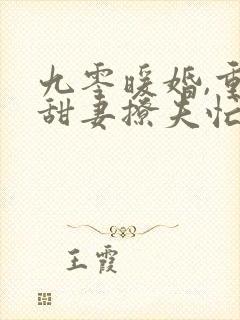 九零暖婚,重
甜妻撩夫忙
王霞